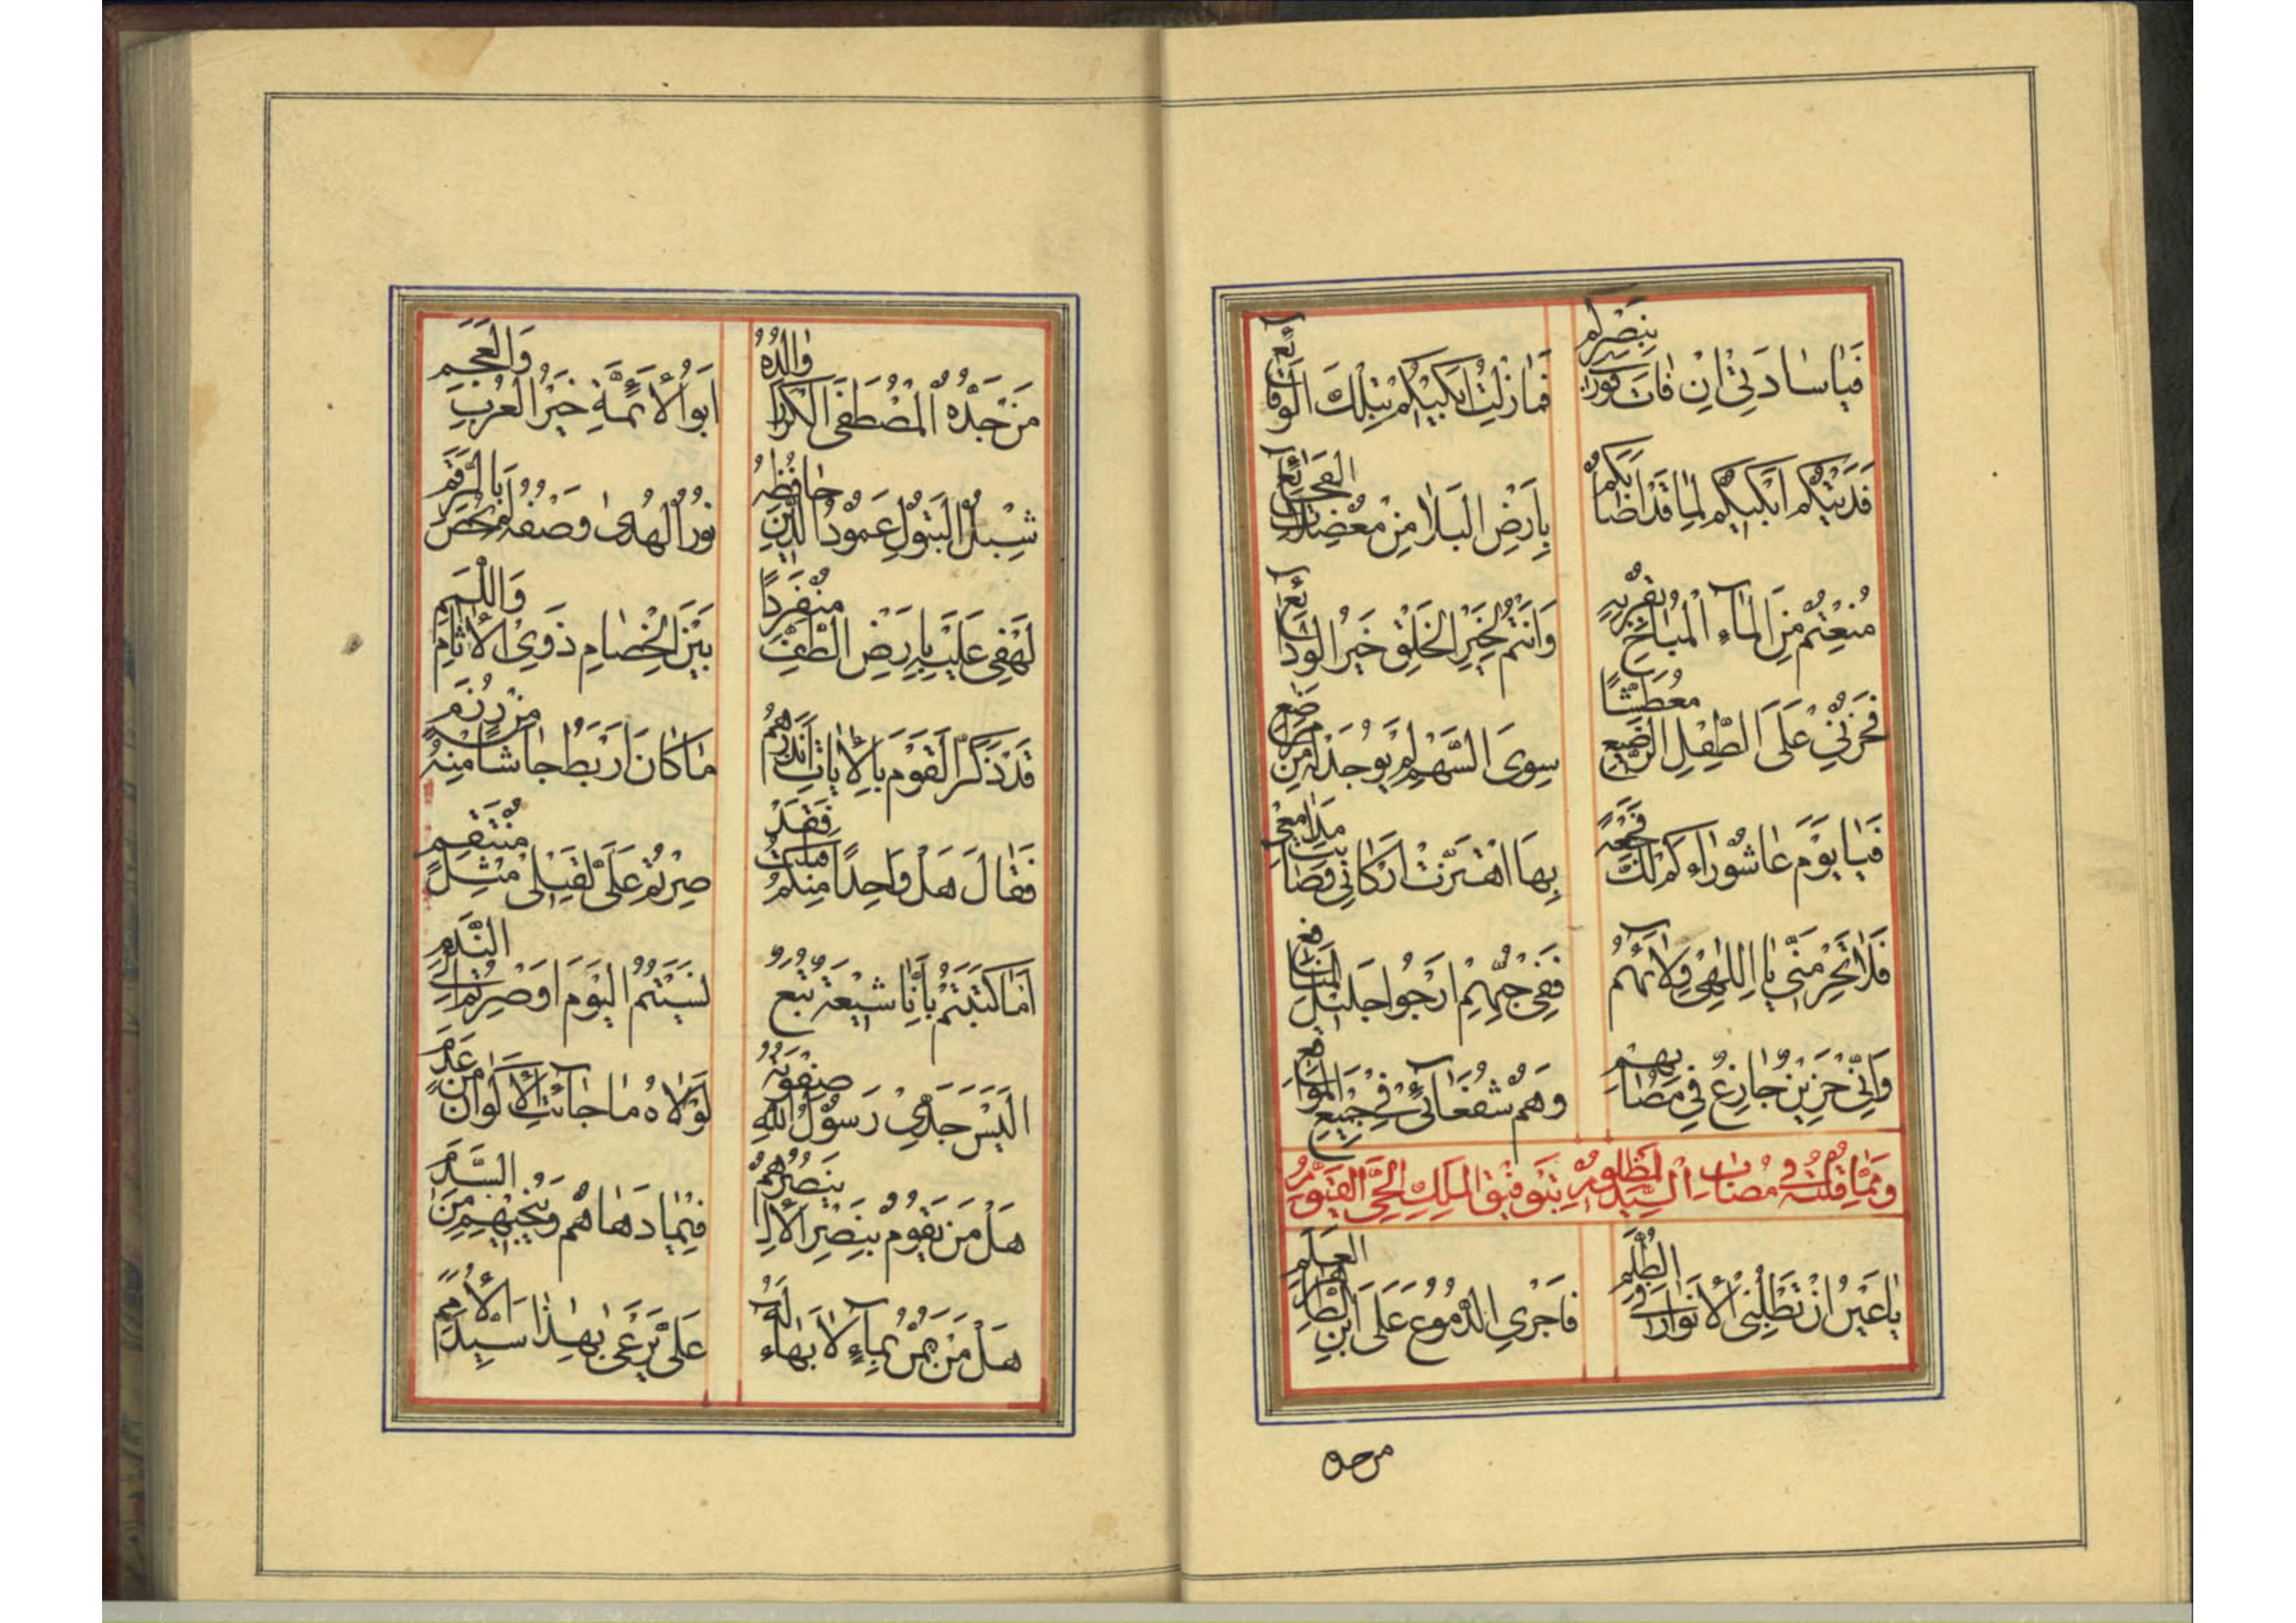 فَيَا سَادَتِي اِنْ فَاتَ فَوْرًا بِنَصْرِكُمْ فَمَا زِلْتُ اَبْكِيْكُمْ بِتِلْكَ الْوَقَائِعِ
فَدَيْتُكُمْ اَبْكِيْكُمْ لِمَا قَدْ اَصَابَكُمْ بِاَرْضِ الْبَلَا مِنْ مُعْضِلَاتِ الْفَجَائِعِ
مُنِعْتُمْ مِنَ الْمَاءِ الْمُبَاحِ وَانْتُمْ لِخَيْرِ الْخَلْقِ خَيْرُ الْوَدَائِعِ
فَحُزْنِي عَلَى الطِّفْلِ الرَّضِيْعِ مُعَطَّشًا سِوَى السَّهْمِ لَمْ يُوْجَدْ لَهُ مِنْ مَرَاضِعِ
فَيَا يَوْمَ عَاشُوْرَاءِ كَمْ لَكَ فَجْعَةً بِهَا اهْتَزَّتْ اَرْكَانِي وَصَابَتْ مَدَامِعِي
فَلَا تَحْرِمَنِّي يَا اِلٰهِي وِلَائَهُمْ فَفِي حُبِّهِمْ اَرْجُوا جَلِيْلَ الْمَنَافِعِ
وَاِنِّي حَزِيْنٌ جَازِعٌ فِي مَصَابِهِمْ وَهُمْ شُفَعَائِي فِي جَمِيْعِ الْمَوَاقِعِ
وَمِمَّا قُلْتُهُ فِي مُصَابِ السَّيِّدِ الْمَظْلُوْمِ بِتَوْفِيْقِ الْمَلِكِ الْحَيِّ الْقَيُّوْمِ
يَا عَيْنُ اِنْ تَطْلُبِي الْاَنْوَارَ فِي الظُّلَمِ فَاَجْرِي الدُّمُوْعَ عَلَى ابْنِ الطَّاهِرِ الْعَلَمِ
مَنْ جَدُّهُ
مَنْ جَدُّهُ الْمُصْطَفَى الْكَرَّارُ وَالِدُهُ اَبُو الْاَئِمَّةِ خَيْرُ الْعُرْبِ وَالْعَجَمِ
شِبْلُ الْبَتُوْلِ عَمُوْدُ الدِّيْنِ حَافِظُهُ نُوْرُ الْهُدٰى وَصْفُهُ لَمْ يُحْصَ بِالرَّقَمِ
لَهْفِي عَلَيْهِ بِاَرْضِ الطَّفِّ مُنْفَرِدًا بَيْنَ الْخِصَامِ ذَوِي الْاٰثَامِ وَاللَّمَمِ
قَدْ ذَكَّرَ الْقَوْمَ بِالْاٰيَاتِ اَنْذَرَهُمْ مَا كَانَ اَرْبَطُ جَاشًا مِنْهُ
فَقَالَ هَلْ وَاحِدًا مِنْكُمْ قَتَلْتُ فَقَدْ صِرْتُمْ عَلَيَّ لِقَتْلِي مِثْلَ مُنْتَقِمِ
اَمَا كَتَبْتُمْ بِاَنَّا شِيْعَةٌ تُبَعٌ نَسَيْتُمُ الْيَوْمَ اَوْ صِرْتُمْ اِلَى النَّدَمِ
اَلَيْسَ جَدِّي رَسُوْلُ اللّٰهِ صِفْوَتُهُ لَوْلَاهُ مَا جَائَتِ الْاَكْوَانُ مِنْ عَدَمِ
هَلْ مَنْ يَقُوْمُ بِنَصْرِ الْاٰلِ يَنْصُرُهُمْ فِيْمَا دَهَاهُمْ وَيُنْجِيْهِمْ مِنَ السَّدَمِ
هَلْ مَنْ يَمُنُّ بِمَاءٍ لَا بَهَاءَ لَهُ عَلَى يَرْعَى بِهٰذَا سَيِّدَ الْاُمَمِ